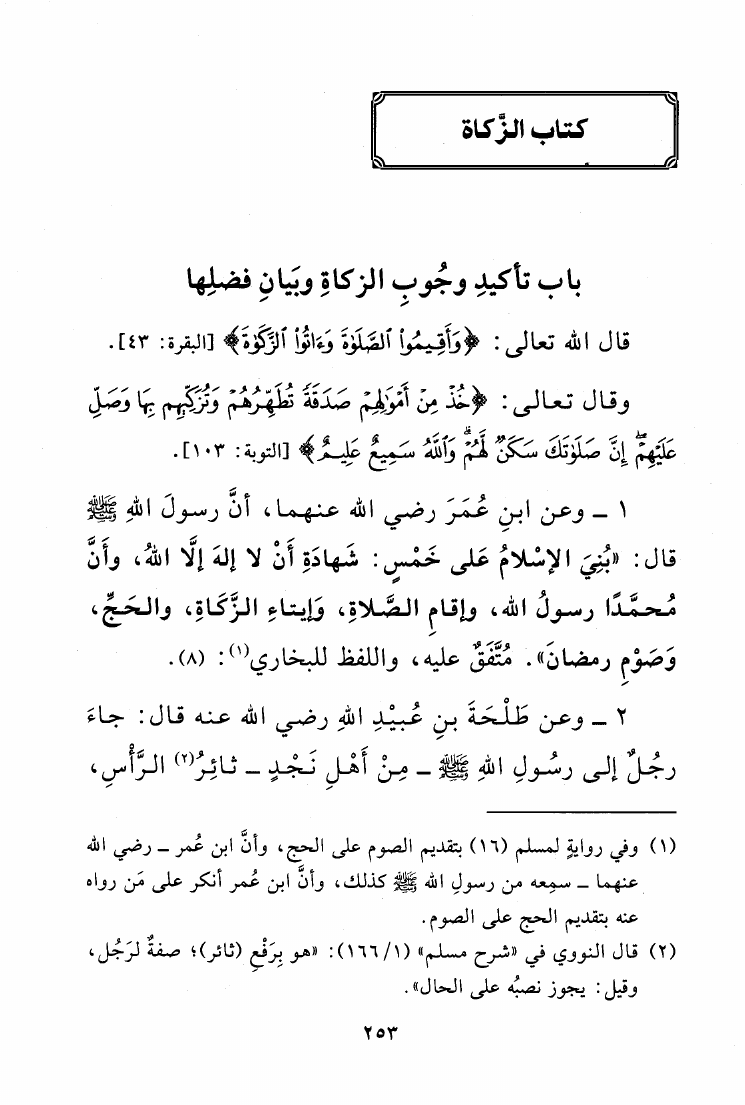 كتاب الزَّكاة
باب تأكيدِ وجُوبِ الزكاةِ وبَيانِ فضلِها
قال الله تعالى: ﴿وَأَقِيمُوا۟ ٱلصَّلَوٰةَ وَءَاتُوا۟ ٱلزَّكَوٰةَ﴾ [البقرة: ٤٣].
وقال تعالى: ﴿خُذْ مِنْ أَمْوَٰلِهِمْ صَدَقَةً تُطَهِّرُهُمْ وَتُزَكِّيهِم بِهَا وَصَلِّ
عَلَيْهِمْ ۖ إِنَّ صَلَوٰتَكَ سَكَنٌ لَّهُمْ ۗ وَٱللَّهُ سَمِيعٌ عَلِيمٌ﴾ [التوبة: ١٠٣].
١ ـ وعن ابنِ عُمَرَ رضي الله عنهما، أنَّ رسولَ اللهِ ﷺ
قال: «بُنِيَ الإسْلامُ عَلى خَمْسٍ: شَهادَةِ أَنْ لا إلهَ إلَّا اللهُ، وأَنَّ
مُحمَّدًا رسولُ الله، وإقامِ الصَّلاةِ، وَإيتاءِ الزَّكَاةِ، والحَجِّ،
وَصَوْمِ رمضانَ». مُتَّفَقٌ عليه، واللفظ للبخاري(١): (٨).
٢ ـ وعن طَلْحَةَ بنِ عُبيْدِ اللهِ رضي الله عنه قال: جاءَ
رجُلٌ إلى رسُولِ اللهِ ﷺ ـ مِنْ أَهْلِ نَجْدٍ ـ ثائِرُ(٢) الرَّأْسِ،
(١) وفي روايةٍ لمسلم (١٦) بتقديم الصوم على الحج، وأنَّ ابن عُمر ـ رضي الله
عنهما ـ سمِعه من رسولِ الله ﷺ كذلك، وأنَّ ابن عُمر أنكر على مَن رواه
عنه بتقديم الحج على الصوم.
(٢) قال النووي في «شرح مسلم» (١/ ١٦٦): «هو بِرَفْعِ (ثائر)؛ صفةٌ لرَجُل،
وقيل: يجوز نصبُه على الحال».
٢٥٣